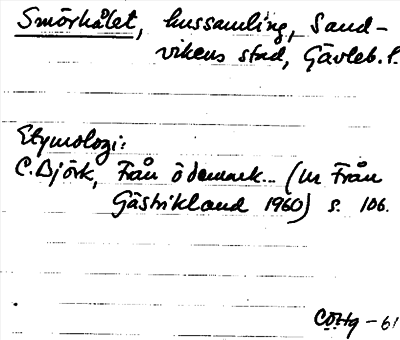 Smörhålet, hussamling, Sand-
vikens stad, Gävleb. l.
Etymologi:
C. Björk, Från ödemark... (ur Från
Gästrikland 1960) s. 106.
-61